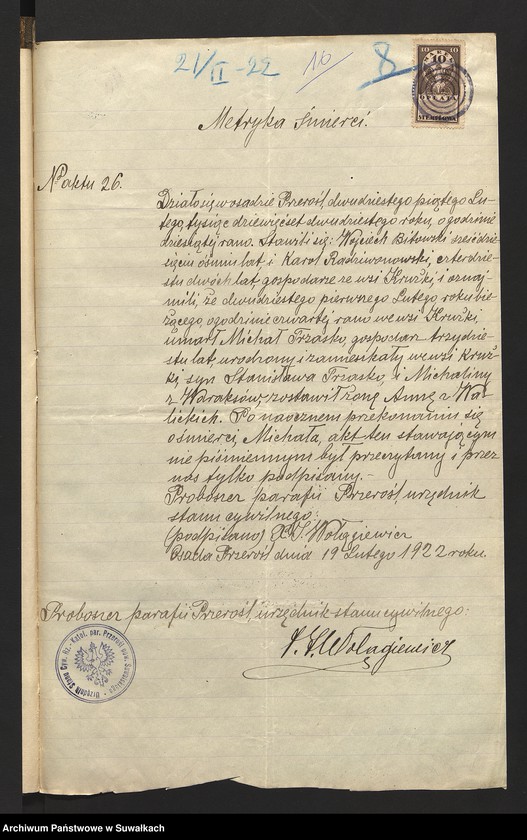 21/II-22 10 8
10 10
10
OPŁATA
STEMPLOWA
Metryka śmierci.
N° aktu 26.
Działo się w osadzie Przerośl, dwudziestego piątego Lu-
tego, tysiąc dziewięćset dwudziestego roku, o godzinie
dziesiątej rano. Stawili się: Wojciech Bitowski sześćdzie-
sięciu ośmiu lat, i Karol Radziwonowski, czterdzie-
stu dwóch lat, gospodarze ze wsi Kruszki, i oznaj-
mili, że dwudziestego pierwszego Lutego roku bie-
żącego, o godzinie czwartej rano we wsi Kruszki
umarł Michał Trzasko, gospodarz trzydzie-
stu lat, urodzony i zamieszkały we wsi Krusz-
ki, syn Stanisława Trzasko, i Michaliny
z Wdraków, zostawił żonę Annę z Wa-
lickich. Po naocznem przekonaniu się
o śmierci, Michała, akt ten stawającym
nie piśmiennym był przeczytany i przez
nas tylko podpisany.-
Proboszcz parafii Przerośl, urzędnik
stanu cywilnego:
(podpisano) X. S. Wołągiewicz
Osada Przerośl dnia 19 Lutego 1922 roku.
Proboszcz parafii Przerośl, urzędnik stanu cywilnego:
S. Wołągiewicz
Urzędnik Stanu Cyw. Rz.-Katol. par. Przerośl pow. Suwalskiego
Archiwum Państwowe w Suwałkach